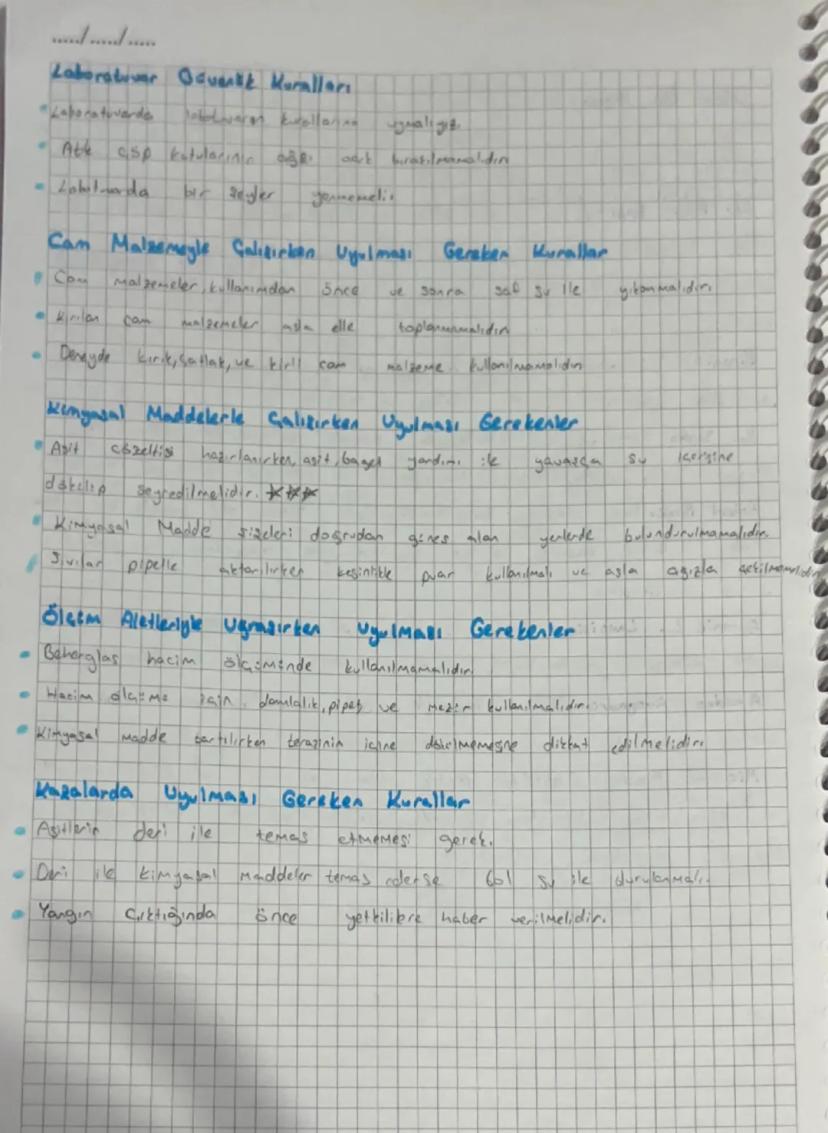 ...../...../.....
Laboratuvar Güvenlik Kuralları
Laboratuvarda kurallarına uymalıyız.
Atık çöp kutularının ağzı açık bırakılmamalıdır
bir şeyler yenmemeli.
Cam Malzemeyle Çalışırken Uyulması Gereken Kurallar
Cam malzemeler, kullanımdan önce ve sonra saf su ile yıkanmalıdır.
Kırılan cam malzemeler asla elle toplanmamalıdır
Deneyde kırık, çatlak, ve kirli cam malzeme kullanılmamalıdır
Kimyasal Maddelerle Çalışırken Uyulması Gerekenler
Asit çözeltisi hazırlanırken, asit, baget yardımı ile yavaşça su içerisine
dökülüp seyredilmelidir. ***
Kimyasal Madde şişeleri doğrudan güneş alan yerlerde bulundurulmamalıdır.
Sıvılar pipetle aktarılırken kesinlikle puar kullanılmalı ve asla ağızla çekilmemelidir
Ölçüm Aletleriyle Uğraşırken Uyulması Gerekenler
Beherglas hacim ölçümünde kullanılmamalıdır.
Hacim ölçümü için, damlalık, pipet ve mezür kullanılmalıdır.
Kimyasal madde tartılırken terazinin içine dökülmemesine dikkat edilmelidir.
Kazalarda Uyulması Gereken Kurallar
Asitlerin deri ile temas etmemesi gerek.
Deri ile kimyasal maddeler temas ederse bol su ile durulanmalı.
Yangın çıktığında önce yetkililere haber verilmelidir.